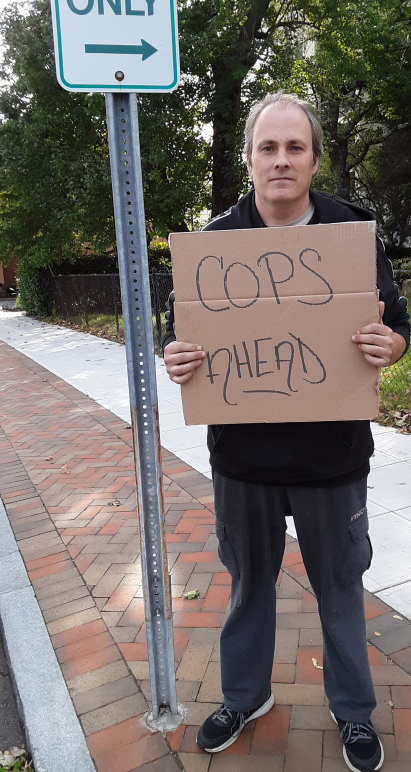 ONLY
COPS
AHEAD